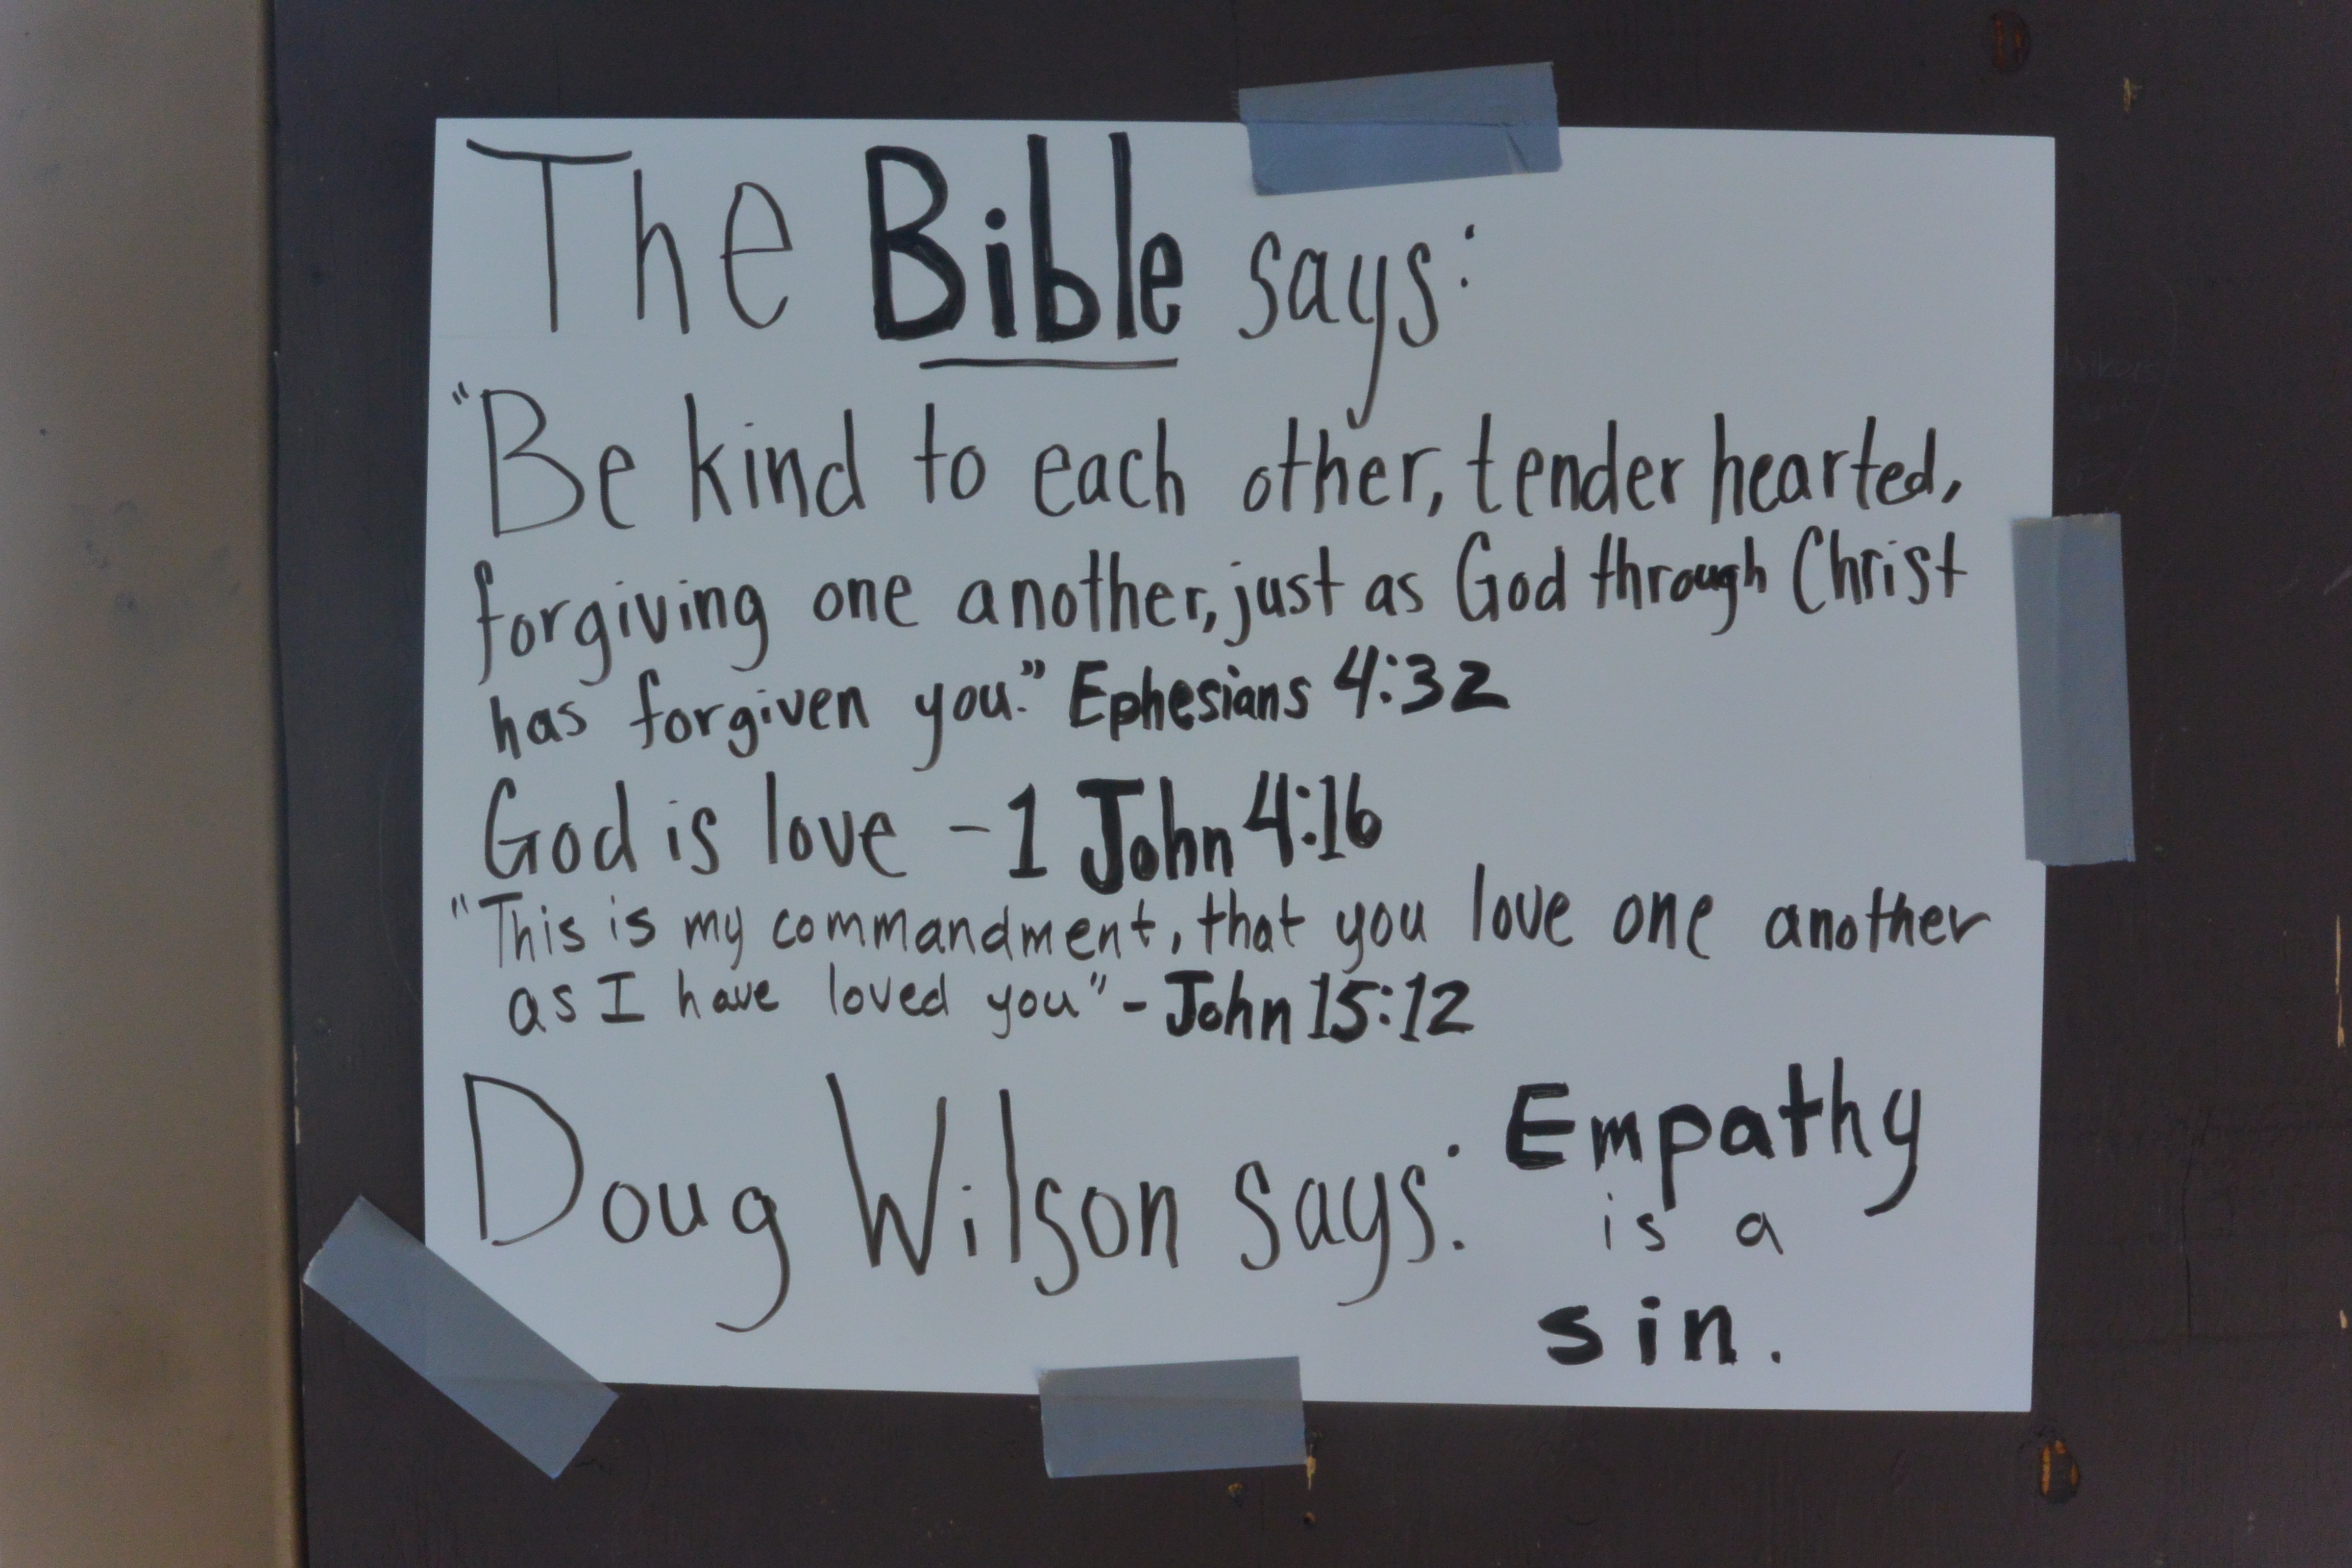 The Bible says:
"Be kind to each other, tender hearted,
forgiving one another, just as God through Christ
has forgiven you." Ephesians 4:32
God is love - 1 John 4:16
"This is my commandment, that you love one another
as I have loved you" - John 15:12
Doug Wilson says: Empathy
is a
sin.